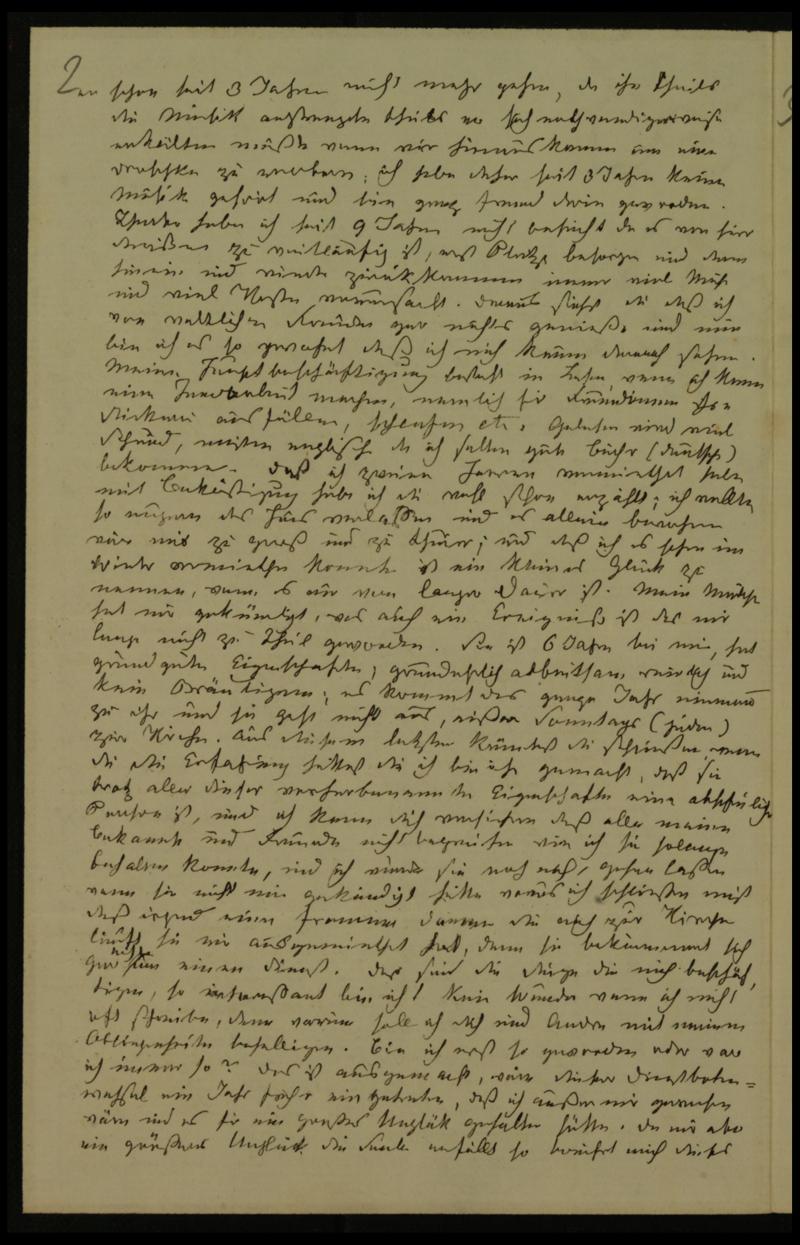 2
schon seit 3 Jahren nicht mehr gehen, da ihn theils
die Musik anstrengte theils er sich nothwendigerweise
erkälten mußte wenn wir hinaus kamen um eine
Droschke zu erwerben; ich habe daher seit 3 Jahren keine
Musik gehört und bin ganz fremd darin geworden.
Theater habe ich seit 9 Jahren nicht besucht da es von hier
draußen zu weitläufig ist, erst Plätze besorgen und dann
hinein und wieder zurükkommen immer viel Mühe
und viel Kosten verursacht. Daraus siehst du daß ich
von weltlichen Freuden gar nichts genieße und nun
bin ich es so gewohnt daß ich mich kaum danach sehne.
Meine Hauptbeschäftigung besteht in Lesen, wenn ich kann
eine Handarbeit machen, nemlich für Freundinnen
Stickerei ausfüllen, etc. Gelesen wird viel
Schund, meistens englisch da ich selten gute Bücher (deutsche)
bekomme. Daß ich zweien Herren vermiethet habe
mit Beköstigung habe ich dir wohl schon erzählt; ich wollte
so ungern das Haus verlassen und es allein bewohnen
wäre mir zu groß und zu theuer; und daß ich es schon im
Winter vermiethen konnte ist ein kleines Glück zu
nennen, wenn es nur von langer Dauer ist. Mein Mädchen
hat mir gekündigt, was auch ein Ereigniß ist das mir
lange nicht zu Theil geworden. Sie ist 6 Jahre bei mir, hat
grundgute Eigenschaften, grundehrlich arbeitsam reinlich und
kein Bräutigam; es kommt das ganze Jahr niemand
zu ihr und sie geht nicht aus, außer Sonntags (jeden)
zur Kirche. Aus diesem letzten könntest du schließen wenn
du die Erfahrung hättest die ich gemacht, daß sie
trotz aller dieser vorherbenannten Eigenschaften eine abscheuliche
Person ist, und ich kann dich versichern daß alle meine
Bekannte und Freunde nicht begreifen wie ich sie solange
behalten konnte, und ich würde sie noch nicht gehen lassen
wenn sie nicht mir gekündigt hätte woraus ich schließen muß
daß irgend einer frommen Dame die auch zur Kirche
läuft sie mir ausgemiethet hat, denn sie bekümmert sich
gar nicht um einen Dienst. Das sind die Dinge die mich beschäf=
tigen, so interessant bin ich! Kein Wunder wenn ich nicht
oft schreibe, denn warum soll ich dich und Andre mit meinen
Obliegenheiten behelligen. Bin ich erst so geworden oder war
ich immer so? Das ist ausgemacht, wäre dieser Dienstboten=
wechsel ein Jahr früher eingetreten, daß ich außer mir gewesen
wäre und es für ein großes Unglük gehalten hätte. Da mir aber
ein größeres Unglück die Seele erfüllt so berührt mich dieses